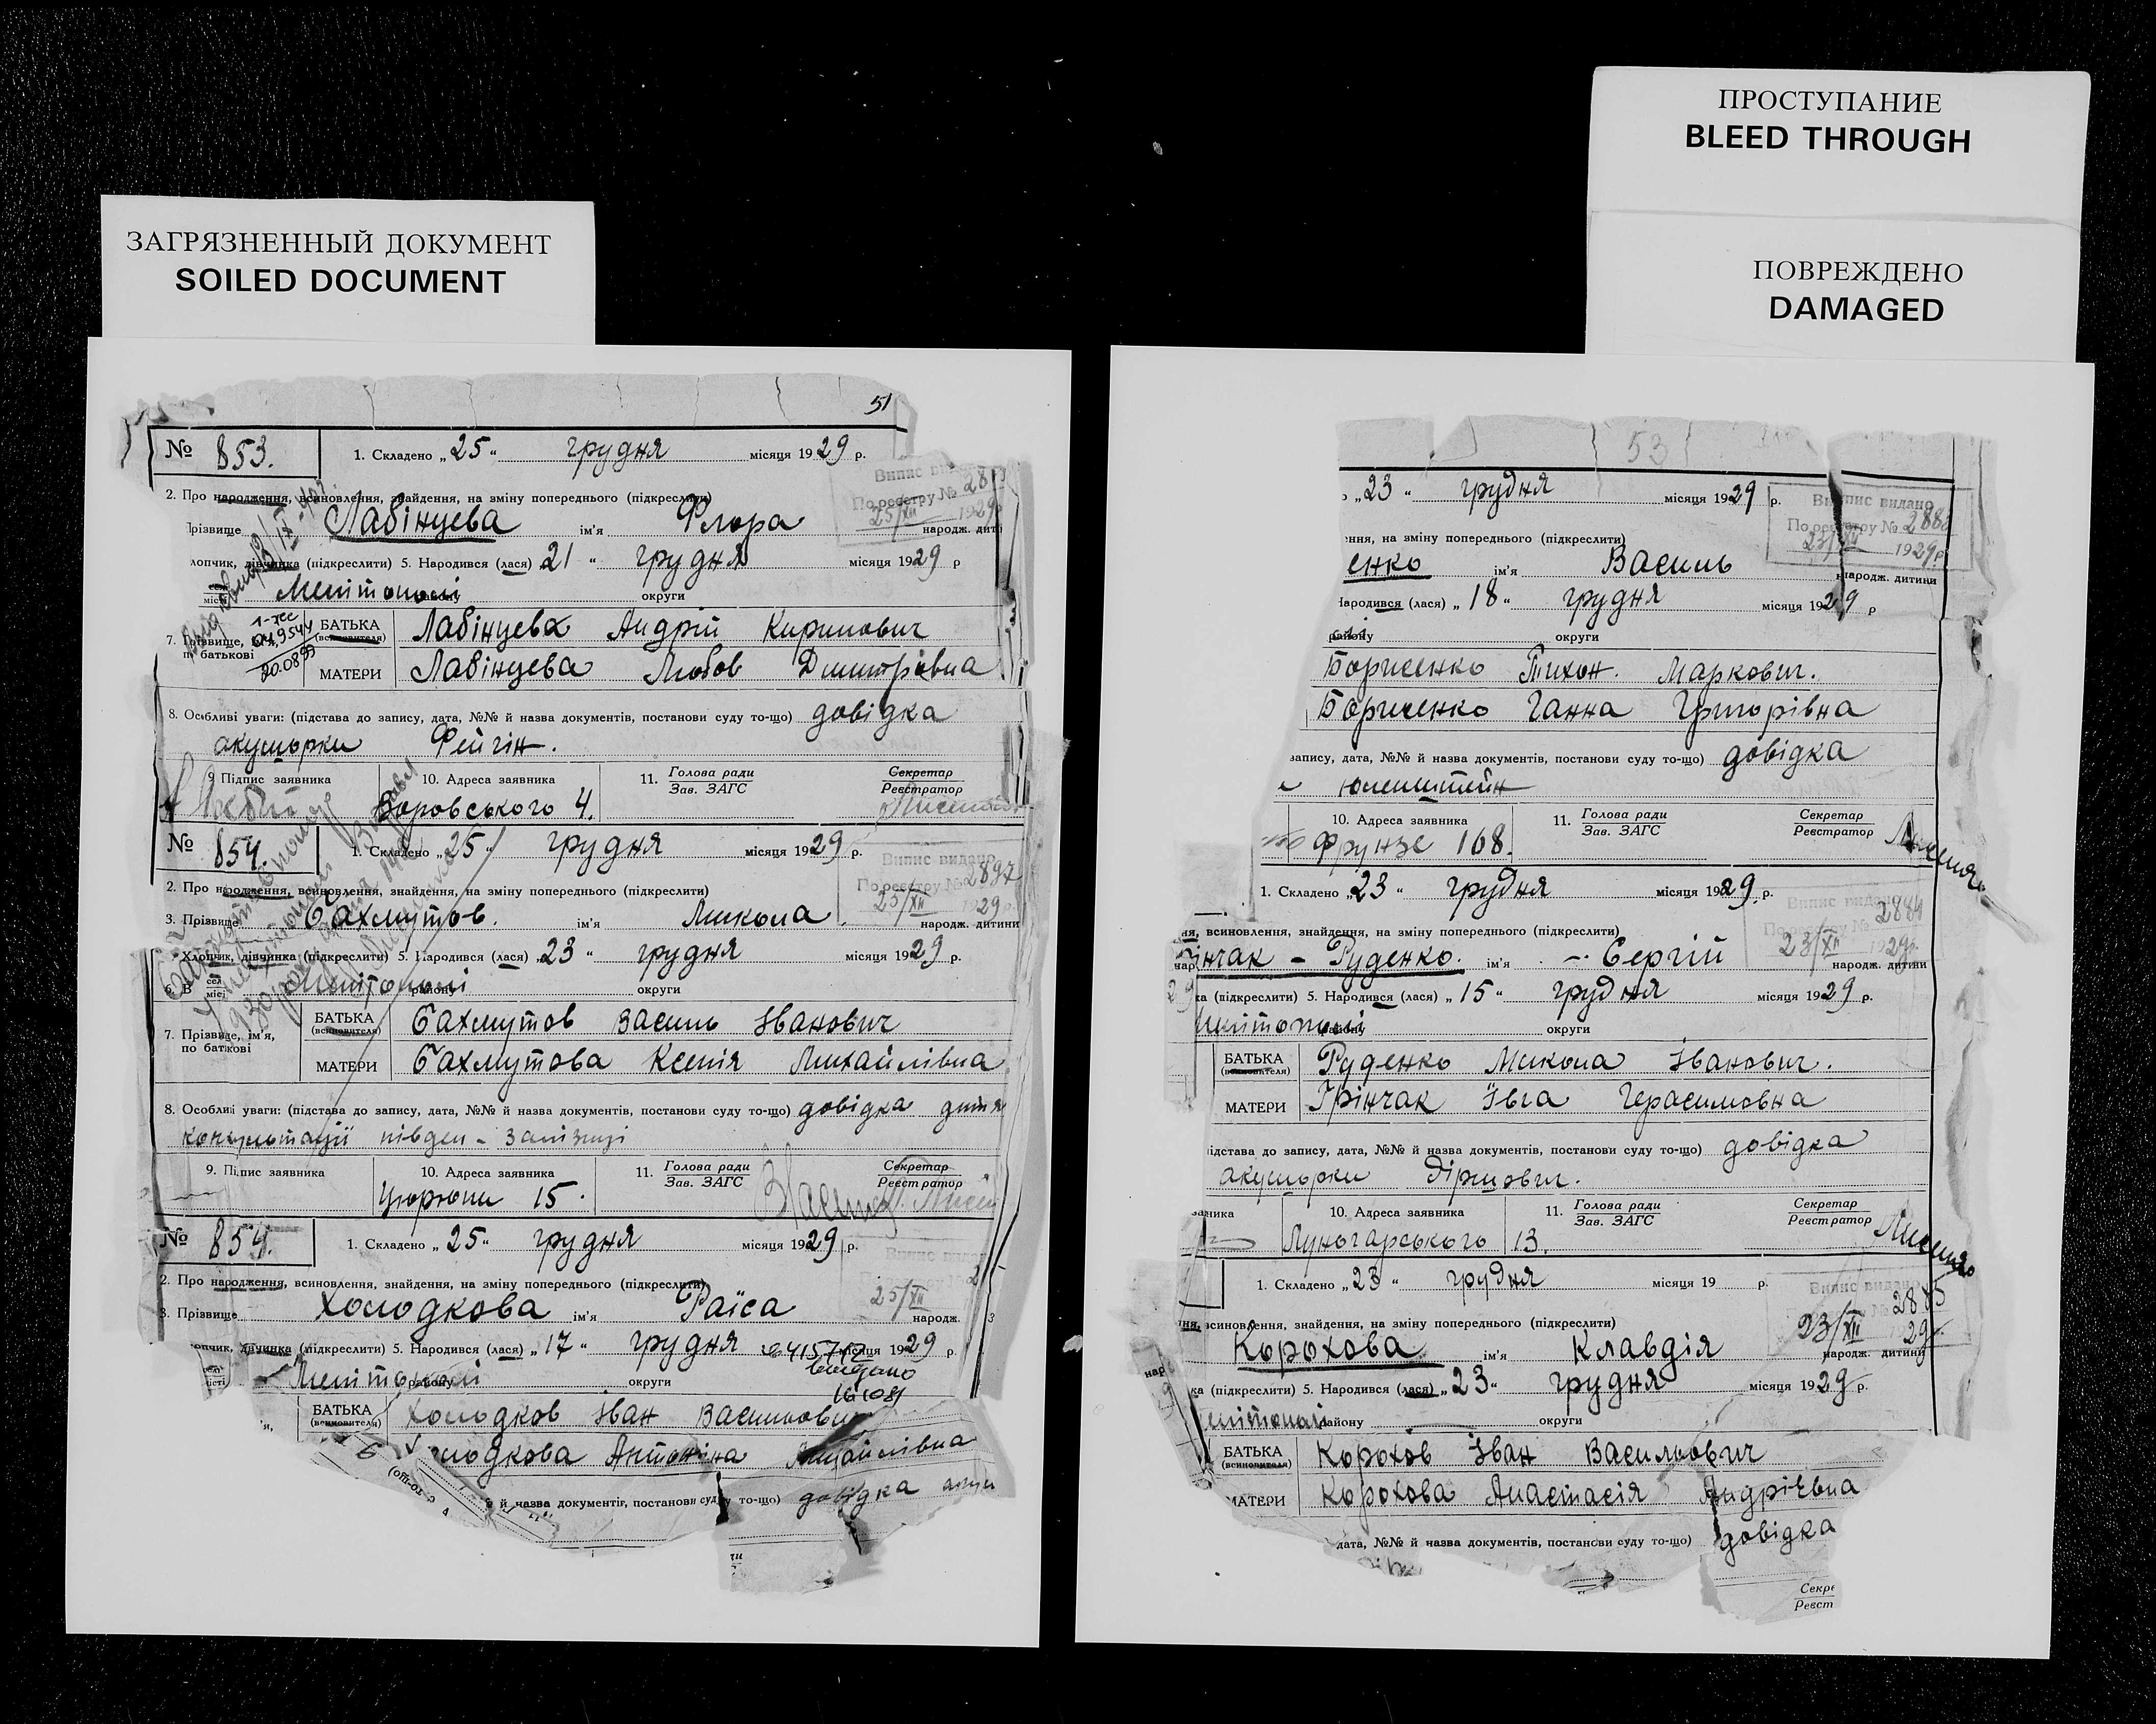 ЗАГРЯЗНЕННЫЙ ДОКУМЕНТ
SOILED DOCUMENT
51
№ 853. 1. Складено „25“ грудня місяця 1929 р.
Випис
По реєстру №
25/XII 1929
2. Про народження, всиновлення, знайдення, на зміну попереднього (підкреслити)
Прізвище Лабінцева ім'я Флора народж. дити
лопчик, дівчинка (підкреслити) 5. Народився (лася) 21 “ грудня місяця 1929 р
Мелітополі району округи
20.08.99
7. Прізвище, ім'я, по батькові
БАТЬКА (всиновителя) Лабінцева Андрій Кирилович
МАТЕРИ Лабінцева Любов Димитрівна
8. Особливі уваги: (підстава до запису, дата, №№ й назва документів, постанови суду то-що) довідка
акушорки Фейгін.
9 Підпис заявника 10. Адреса заявника 11. Голова ради Зав. ЗАГС Секретар Реєстратор
Воровського 4.
№ 854. 1. Складено „25“ грудня місяця 1929 р.
Випис видано
По реєстру № 2897
25/XII 1929 р.
2. Про народження, всиновлення, знайдення, на зміну попереднього (підкреслити)
3. Прізвище Бахмутов. ім'я Микола. народж. дитини
Хлопчик, дівчинка (підкреслити) 5. Народився (лася) 23 “ грудня місяця 1929 р.
6. В Мелітополі району округи
7. Прізвище, ім'я, по батькові
БАТЬКА (всиновителя) Бахмутов Василь Іванович
МАТЕРИ Бахмутова Ксенія Михайлівна
8. Особливі уваги: (підстава до запису, дата, №№ й назва документів, постанови суду то-що) довідка дитя
консультації півден - залізниці
9. Підпис заявника 10. Адреса заявника 11. Голова ради Зав. ЗАГС Секретар Реєстратор
Цюрюпи 15.
№ 854. 1. Складено „25“ грудня місяця 1929 р.
Випис видан
25/XII
2. Про народження, всиновлення, знайдення, на зміну попереднього (підкреслити)
3. Прізвище Холодкова ім'я Раїса народж.
опчик, дівчинка (підкреслити) 5. Народився (лася) „17“ грудня місяця 1929 р.
Мелітополі району округи
видано
БАТЬКА (всиновителя) Холодков Іван Васильович
лодкова Антоніна Михайлівна
й назва документів, постанови суду то-що) довідка акуш
ПРОСТУПАНИЕ
BLEED THROUGH
ПОВРЕЖДЕНО
DAMAGED
53
„23“ грудня місяця 1929 р.
Випис видано
По реєстру № 288
23/XII 1929 р.
ення, на зміну попереднього (підкреслити)
енко ім'я Василь народж. дитини
Народився (лася) „18“ грудня місяця 1929 р
району округи
Борисенко Тихон. Маркович.
Борисенко Ганна Григорівна
запису, дата, №№ й назва документів, постанови суду то-що) довідка
10. Адреса заявника 11. Голова ради Зав. ЗАГС Секретар Реєстратор
Фрунзе 168.
1. Складено „23“ грудня місяця 1929 р.
Випис видано
По реєстру № 2884
23/XII 1929 р.
ня, всиновлення, знайдення, на зміну попереднього (підкреслити)
інчак - Руденко. ім'я Сергій народж. дитини
ка (підкреслити) 5. Народився (лася) „15“ грудня місяця 1929 р.
Мелітополі району округи
БАТЬКА (всиновителя) Руденко Микола Іванович.
МАТЕРИ Грінчак Ївга Герасимовна
ідстава до запису, дата, №№ й назва документів, постанови суду то-що) довідка
акушорки Гіршович.
заявника 10. Адреса заявника 11. Голова ради Зав. ЗАГС Секретар Реєстратор
Луначарського 13.
1. Складено „23“ грудня місяця 19 р.
Випис видано
№ 2885
23/XII 29 р.
ння, всиновлення, знайдення, на зміну попереднього (підкреслити)
Корохова ім'я Клавдія народж. дитини
ка (підкреслити) 5. Народився (лася) „23“ грудня місяця 1929 р.
елітополі району округи
БАТЬКА (всиновителя) Корохов Іван Васильович
МАТЕРИ Корохова Анастасія Андріївна
дата, №№ й назва документів, постанови суду то-що) довідка
Секре
Реєст